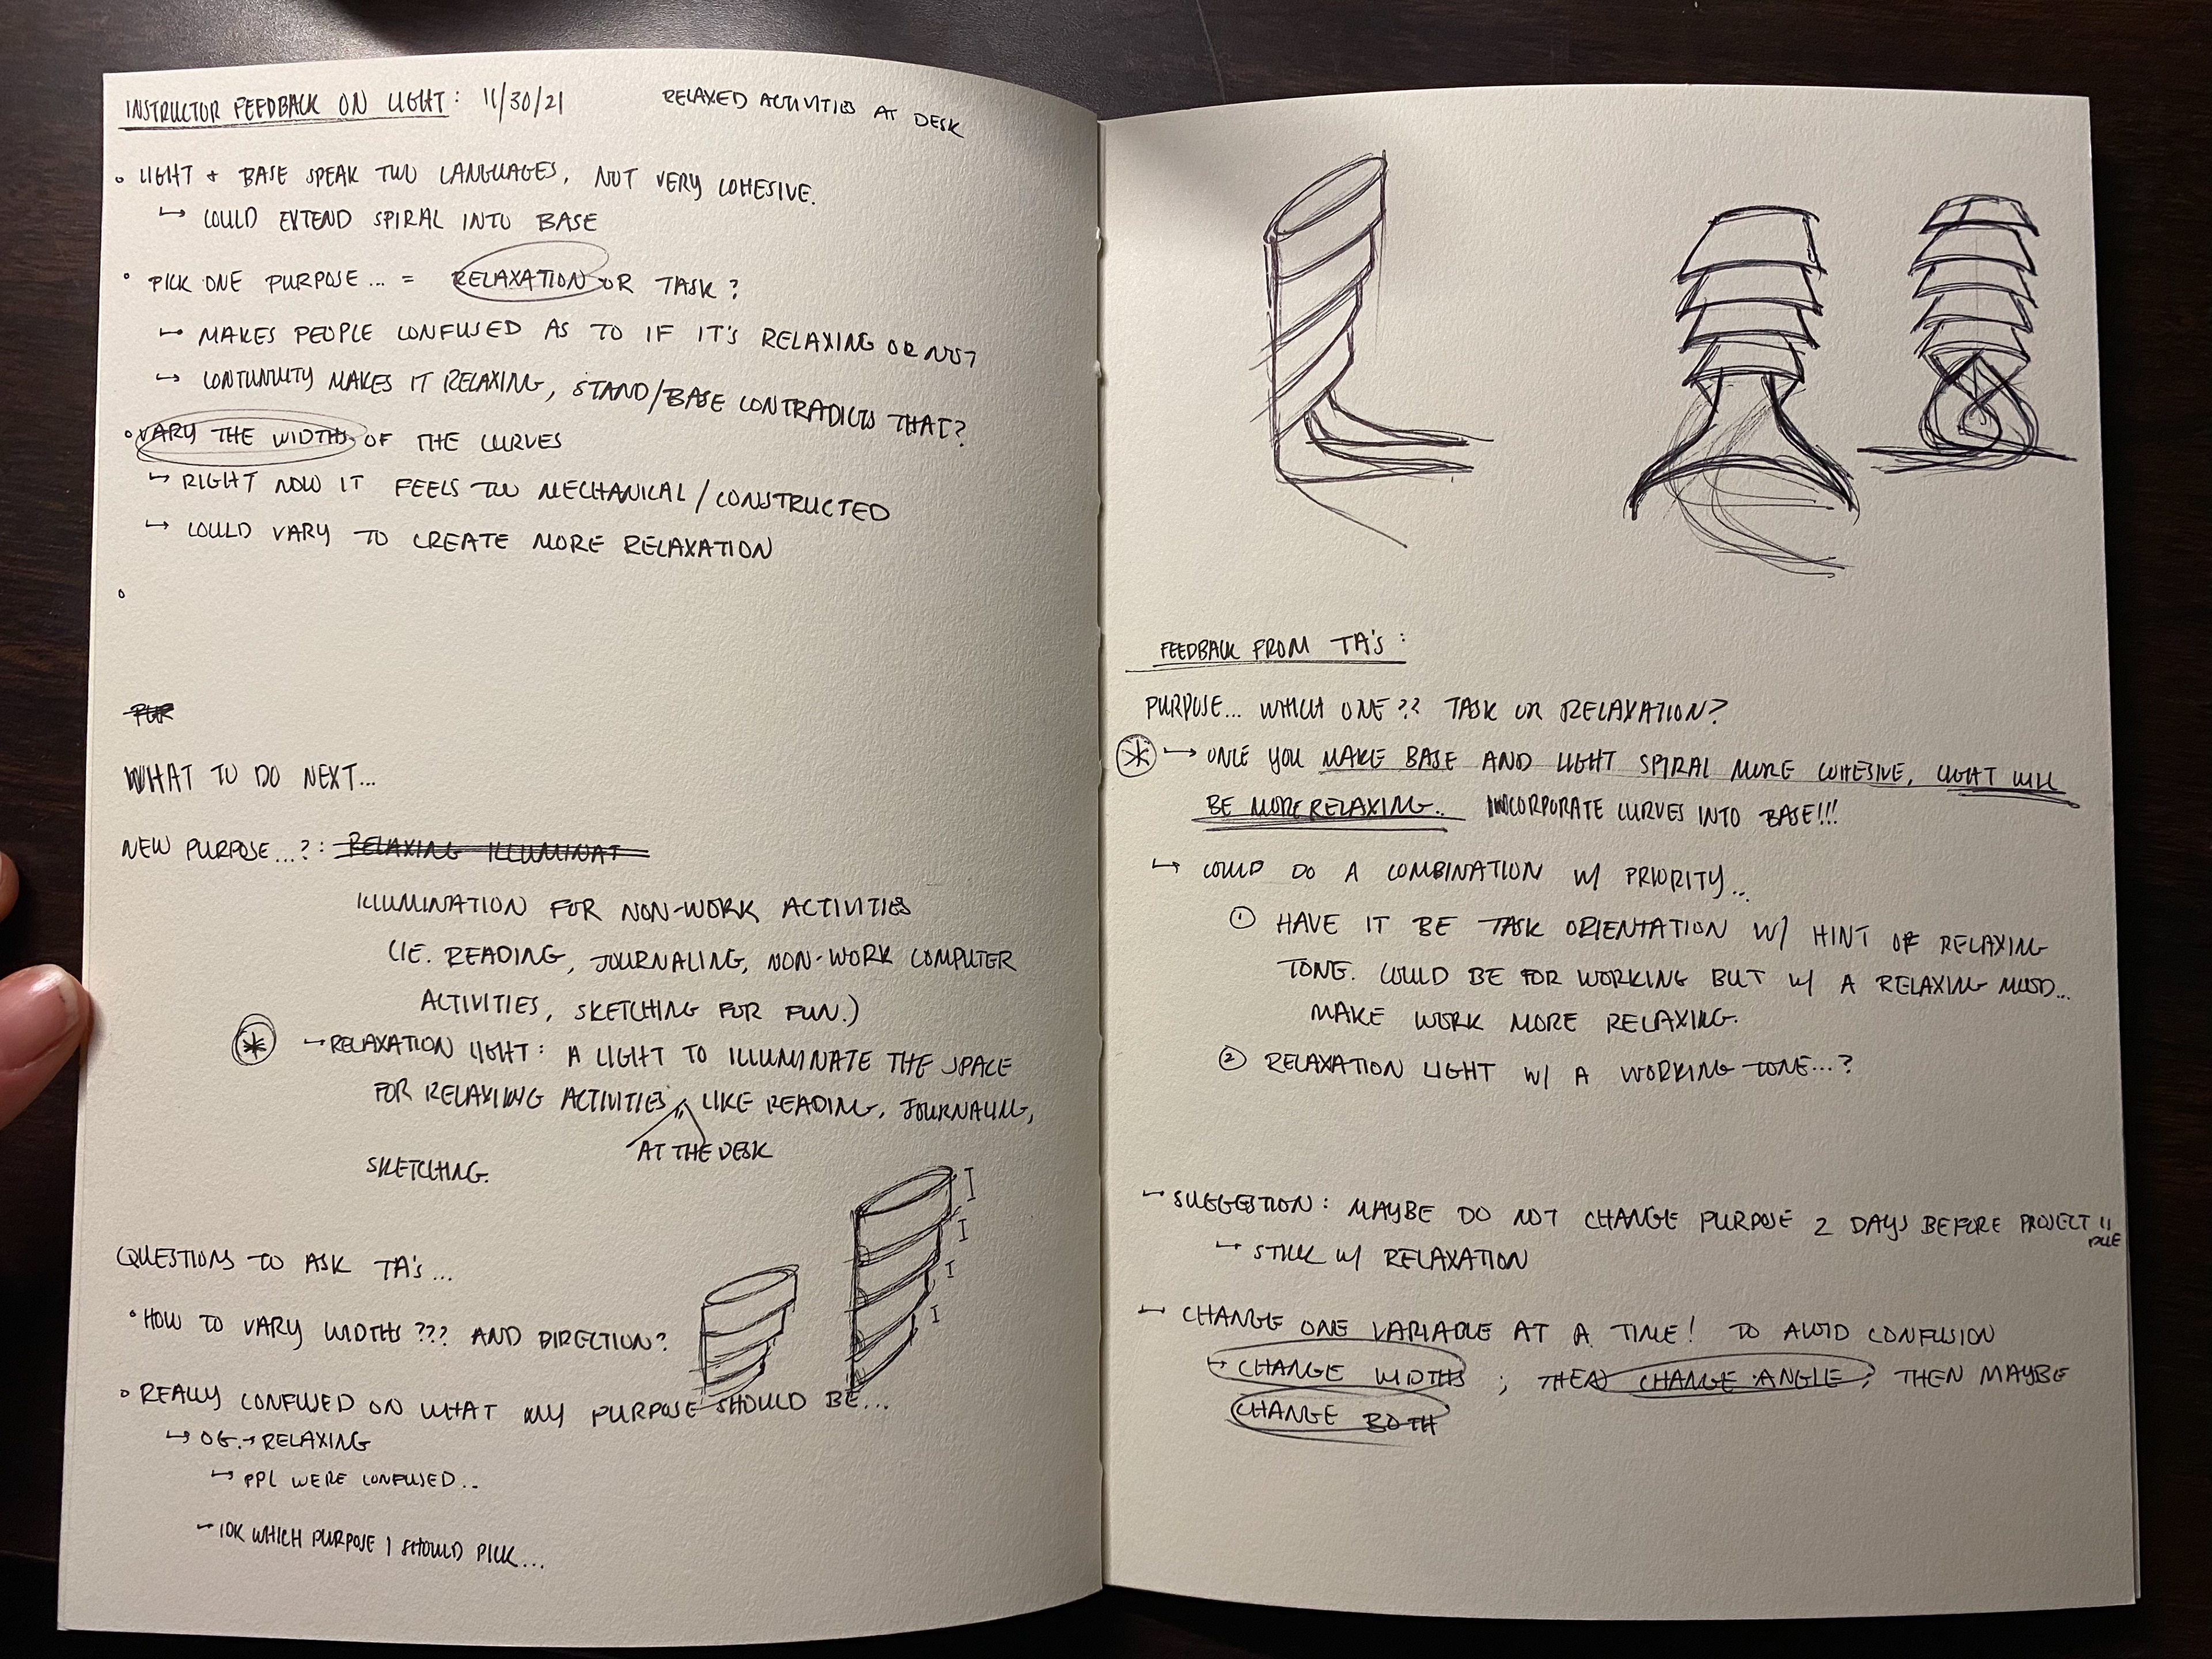 INSTRUCTOR FEEDBACK ON LIGHT: 11/30/21
RELAXED ACTIVITIES AT DESK
◦ LIGHT + BASE SPEAK TWO LANGUAGES, NOT VERY COHESIVE.
↳ COULD EXTEND SPIRAL INTO BASE
◦ PICK ONE PURPOSE... = RELAXATION OR TASK?
↳ MAKES PEOPLE CONFUSED AS TO IF IT'S RELAXING OR NOT
↳ CONTINUITY MAKES IT RELAXING, STAND/BASE CONTRADICTS THAT?
◦ VARY THE WIDTHS OF THE CURVES
↳ RIGHT NOW IT FEELS TOO MECHANICAL/CONSTRUCTED
↳ COULD VARY TO CREATE MORE RELAXATION
◦
PUR
WHAT TO DO NEXT...
NEW PURPOSE...?: RELAXING ILLUMINAT
ILLUMINATION FOR NON-WORK ACTIVITIES
(IE. READING, JOURNALING, NON-WORK COMPUTER
ACTIVITIES, SKETCHING FOR FUN.)
* → RELAXATION LIGHT: A LIGHT TO ILLUMINATE THE SPACE
FOR RELAXING ACTIVITIES, LIKE READING, JOURNALING,
AT THE DESK
SKETCHING.
QUESTIONS TO ASK TA's...
◦ HOW TO VARY WIDTHS??? AND DIRECTION?
◦ REALLY CONFUSED ON WHAT MY PURPOSE SHOULD BE...
↳ OG. → RELAXING
↳ PPL WERE CONFUSED...
→ IDK WHICH PURPOSE I SHOULD PICK...
FEEDBACK FROM TA's:
PURPOSE... WHICH ONE?? TASK OR RELAXATION?
* ↳ ONCE YOU MAKE BASE AND LIGHT SPIRAL MORE COHESIVE, LIGHT WILL
BE MORE RELAXING.. INCORPORATE CURVES INTO BASE!!!
↳ COULD DO A COMBINATION W/ PRIORITY..
① HAVE IT BE TASK ORIENTATION W/ HINT OF RELAXING
TONE. COULD BE FOR WORKING BUT W/ A RELAXING MOOD...
MAKE WORK MORE RELAXING.
② RELAXATION LIGHT W/ A WORKING TONE...?
↳ SUGGESTION: MAYBE DO NOT CHANGE PURPOSE 2 DAYS BEFORE PROJECT !!
DUE
↳ STICK W/ RELAXATION
↳ CHANGE ONE VARIABLE AT A TIME! TO AVOID CONFUSION
↳ CHANGE WIDTHS ; THEN CHANGE ANGLE ; THEN MAYBE
CHANGE BOTH